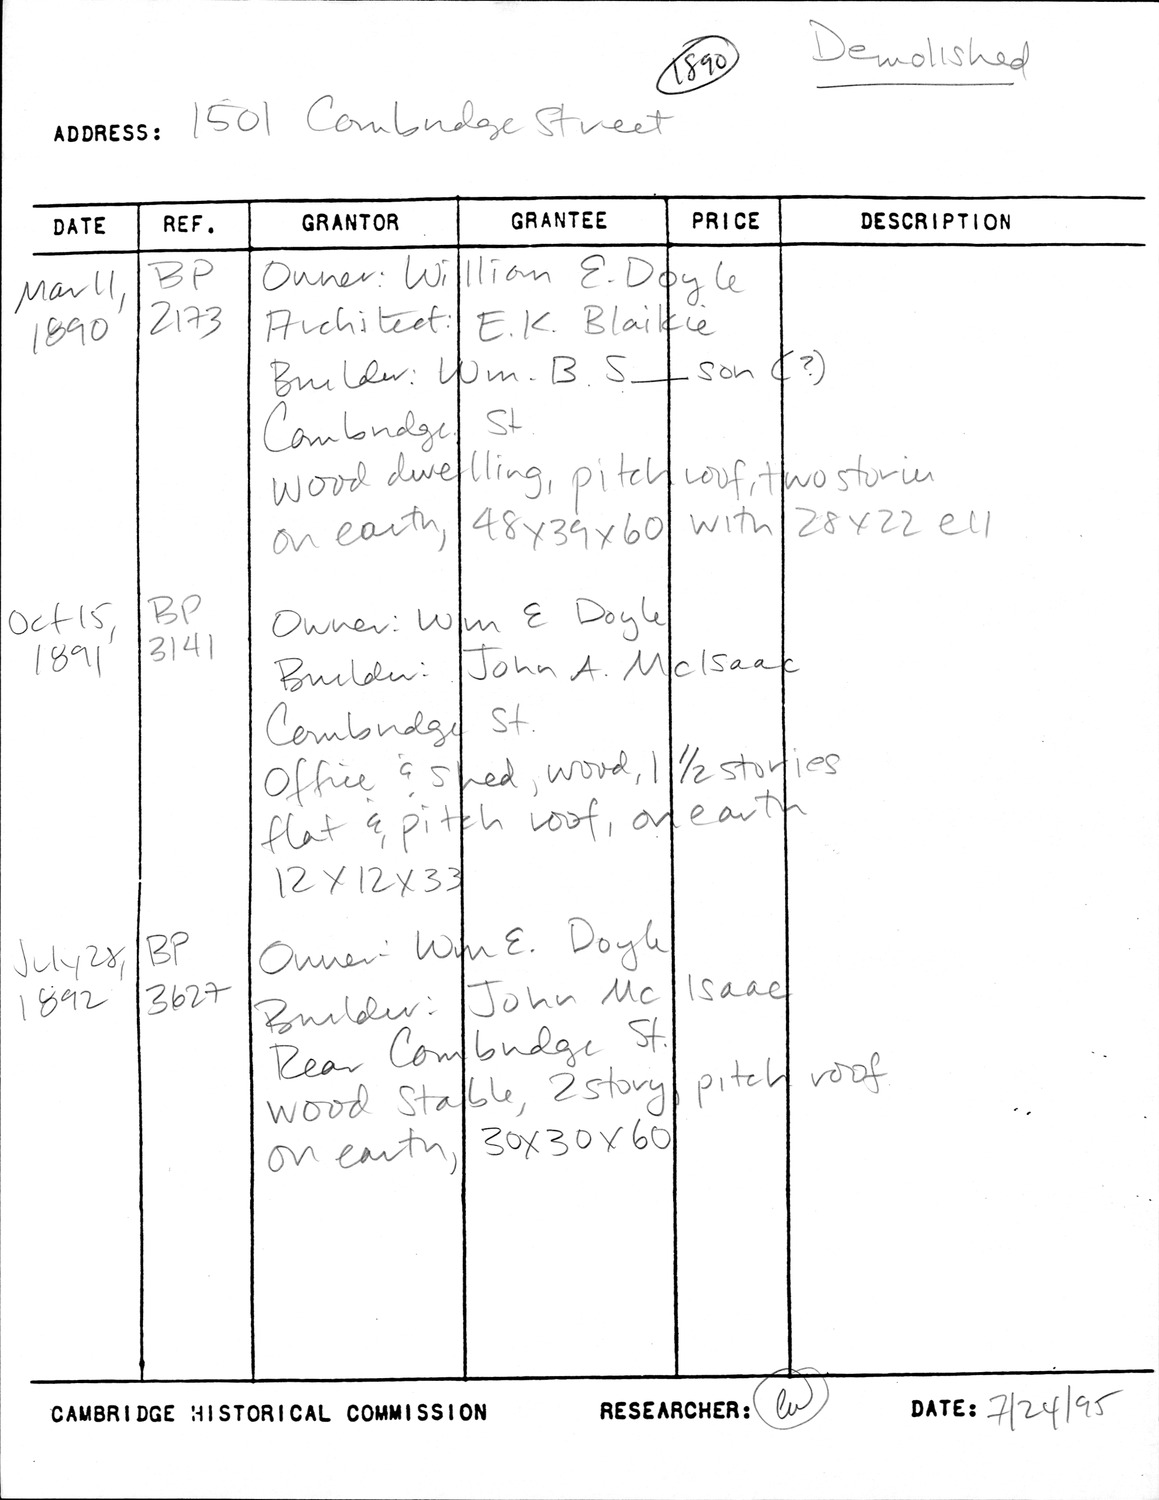 1890
Demolished
ADDRESS: 1501 Cambridge Street
DATE REF. GRANTOR GRANTEE PRICE DESCRIPTION
Mar 11, 1890 BP 2173 Owner: William E. Doyle
Architect: E.K. Blaikie
Builder: Wm. B. S___son (?)
Cambridge St
wood dwelling, pitch roof, two stories
on earth, 48x39x60 with 28x22 ell
Oct 15, 1891 BP 3141 Owner: Wm E Doyle
Builder: John A. McIsaac
Cambridge St.
Office & shed, wood, 1 1/2 stories
flat & pitch roof, on earth
12x12x33
July 28, 1892 BP 3627 Owner: Wm E. Doyle
Builder: John McIsaac
Rear Cambridge St.
wood stable, 2 story, pitch roof
on earth, 30x30x60
CAMBRIDGE HISTORICAL COMMISSION RESEARCHER: DATE: 7/24/95